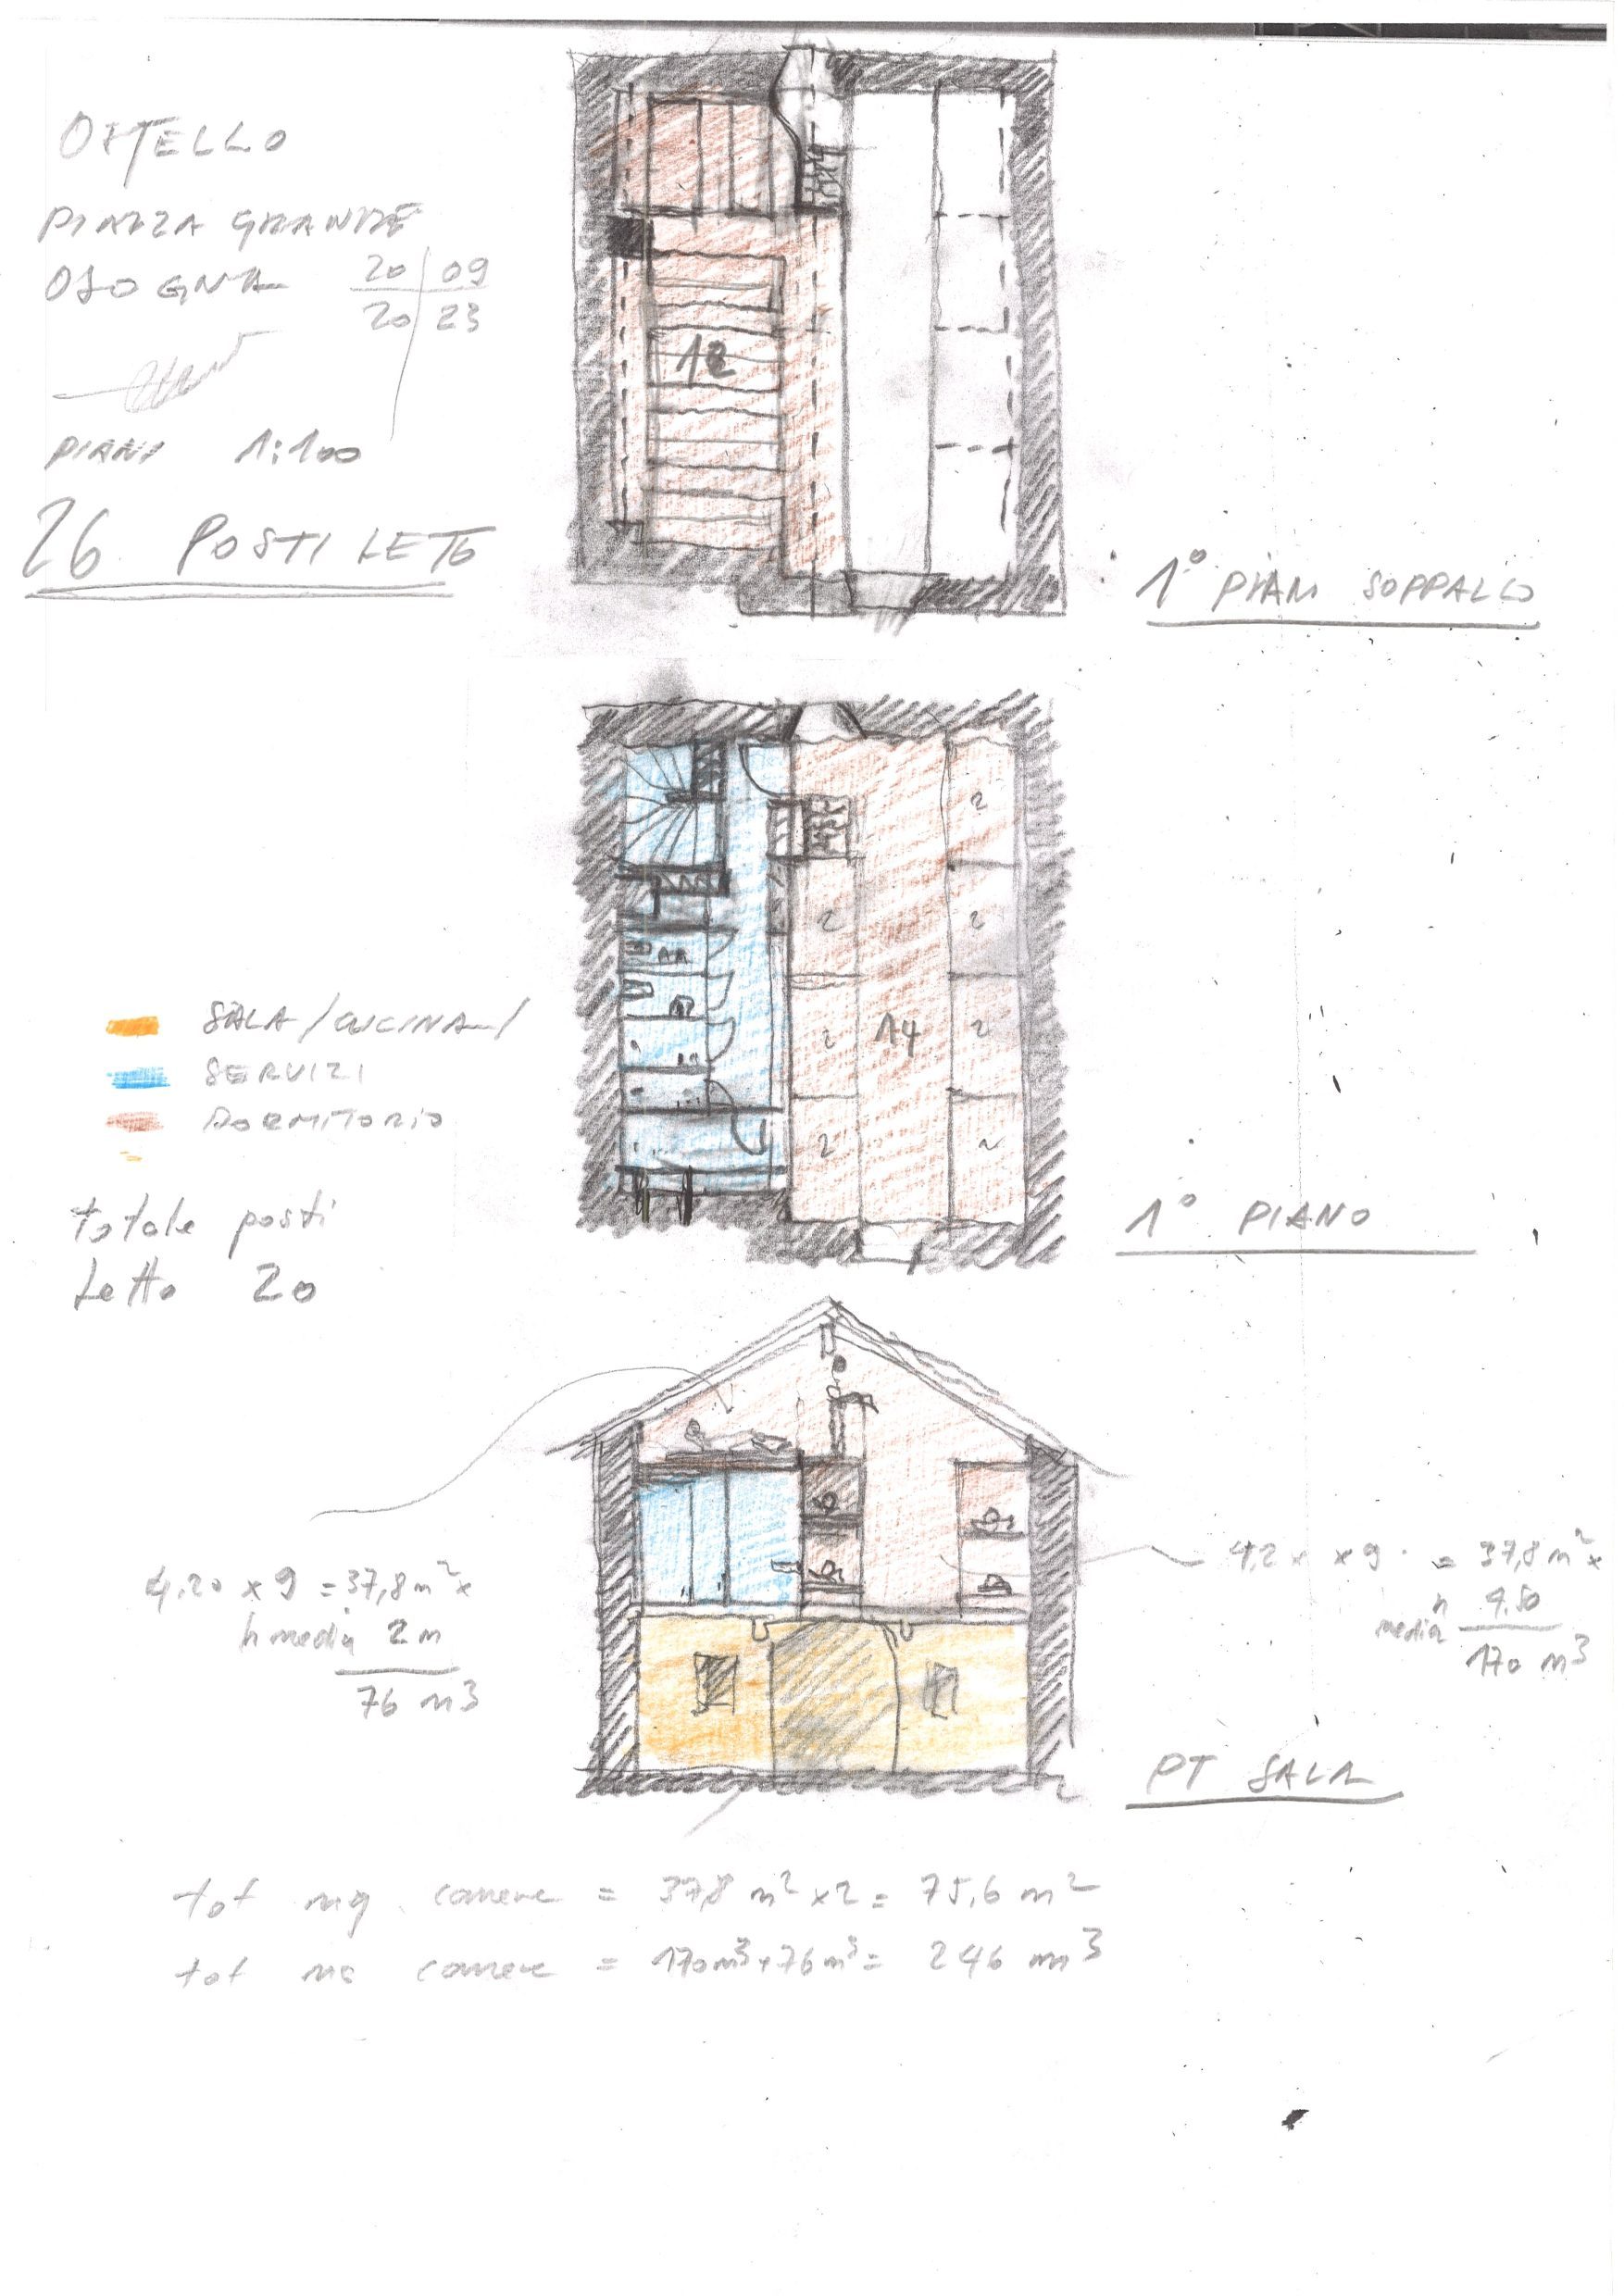 OSTELLO
PIAZZA GRANDE
OSOGNA 20 09
20 23
PIANI 1:100
26 POSTI LETTO
12
1° PIANO SOPPALCO
2
2 2
2 14 2
2 2
1° PIANO
SALA / CUCINA /
SERVIZI
DORMITORIO
totale posti
Letto 20
4,20 x 9 = 37,8 m² x
h media 2 m
76 m3
4,2 x x 9 = 37,8 m² x
h media 4.50
170 m3
PT SALA
tot mq camere = 37,8 m² x 2 = 75,6 m²
tot mc camere = 170m³ + 76m³ = 246 m3